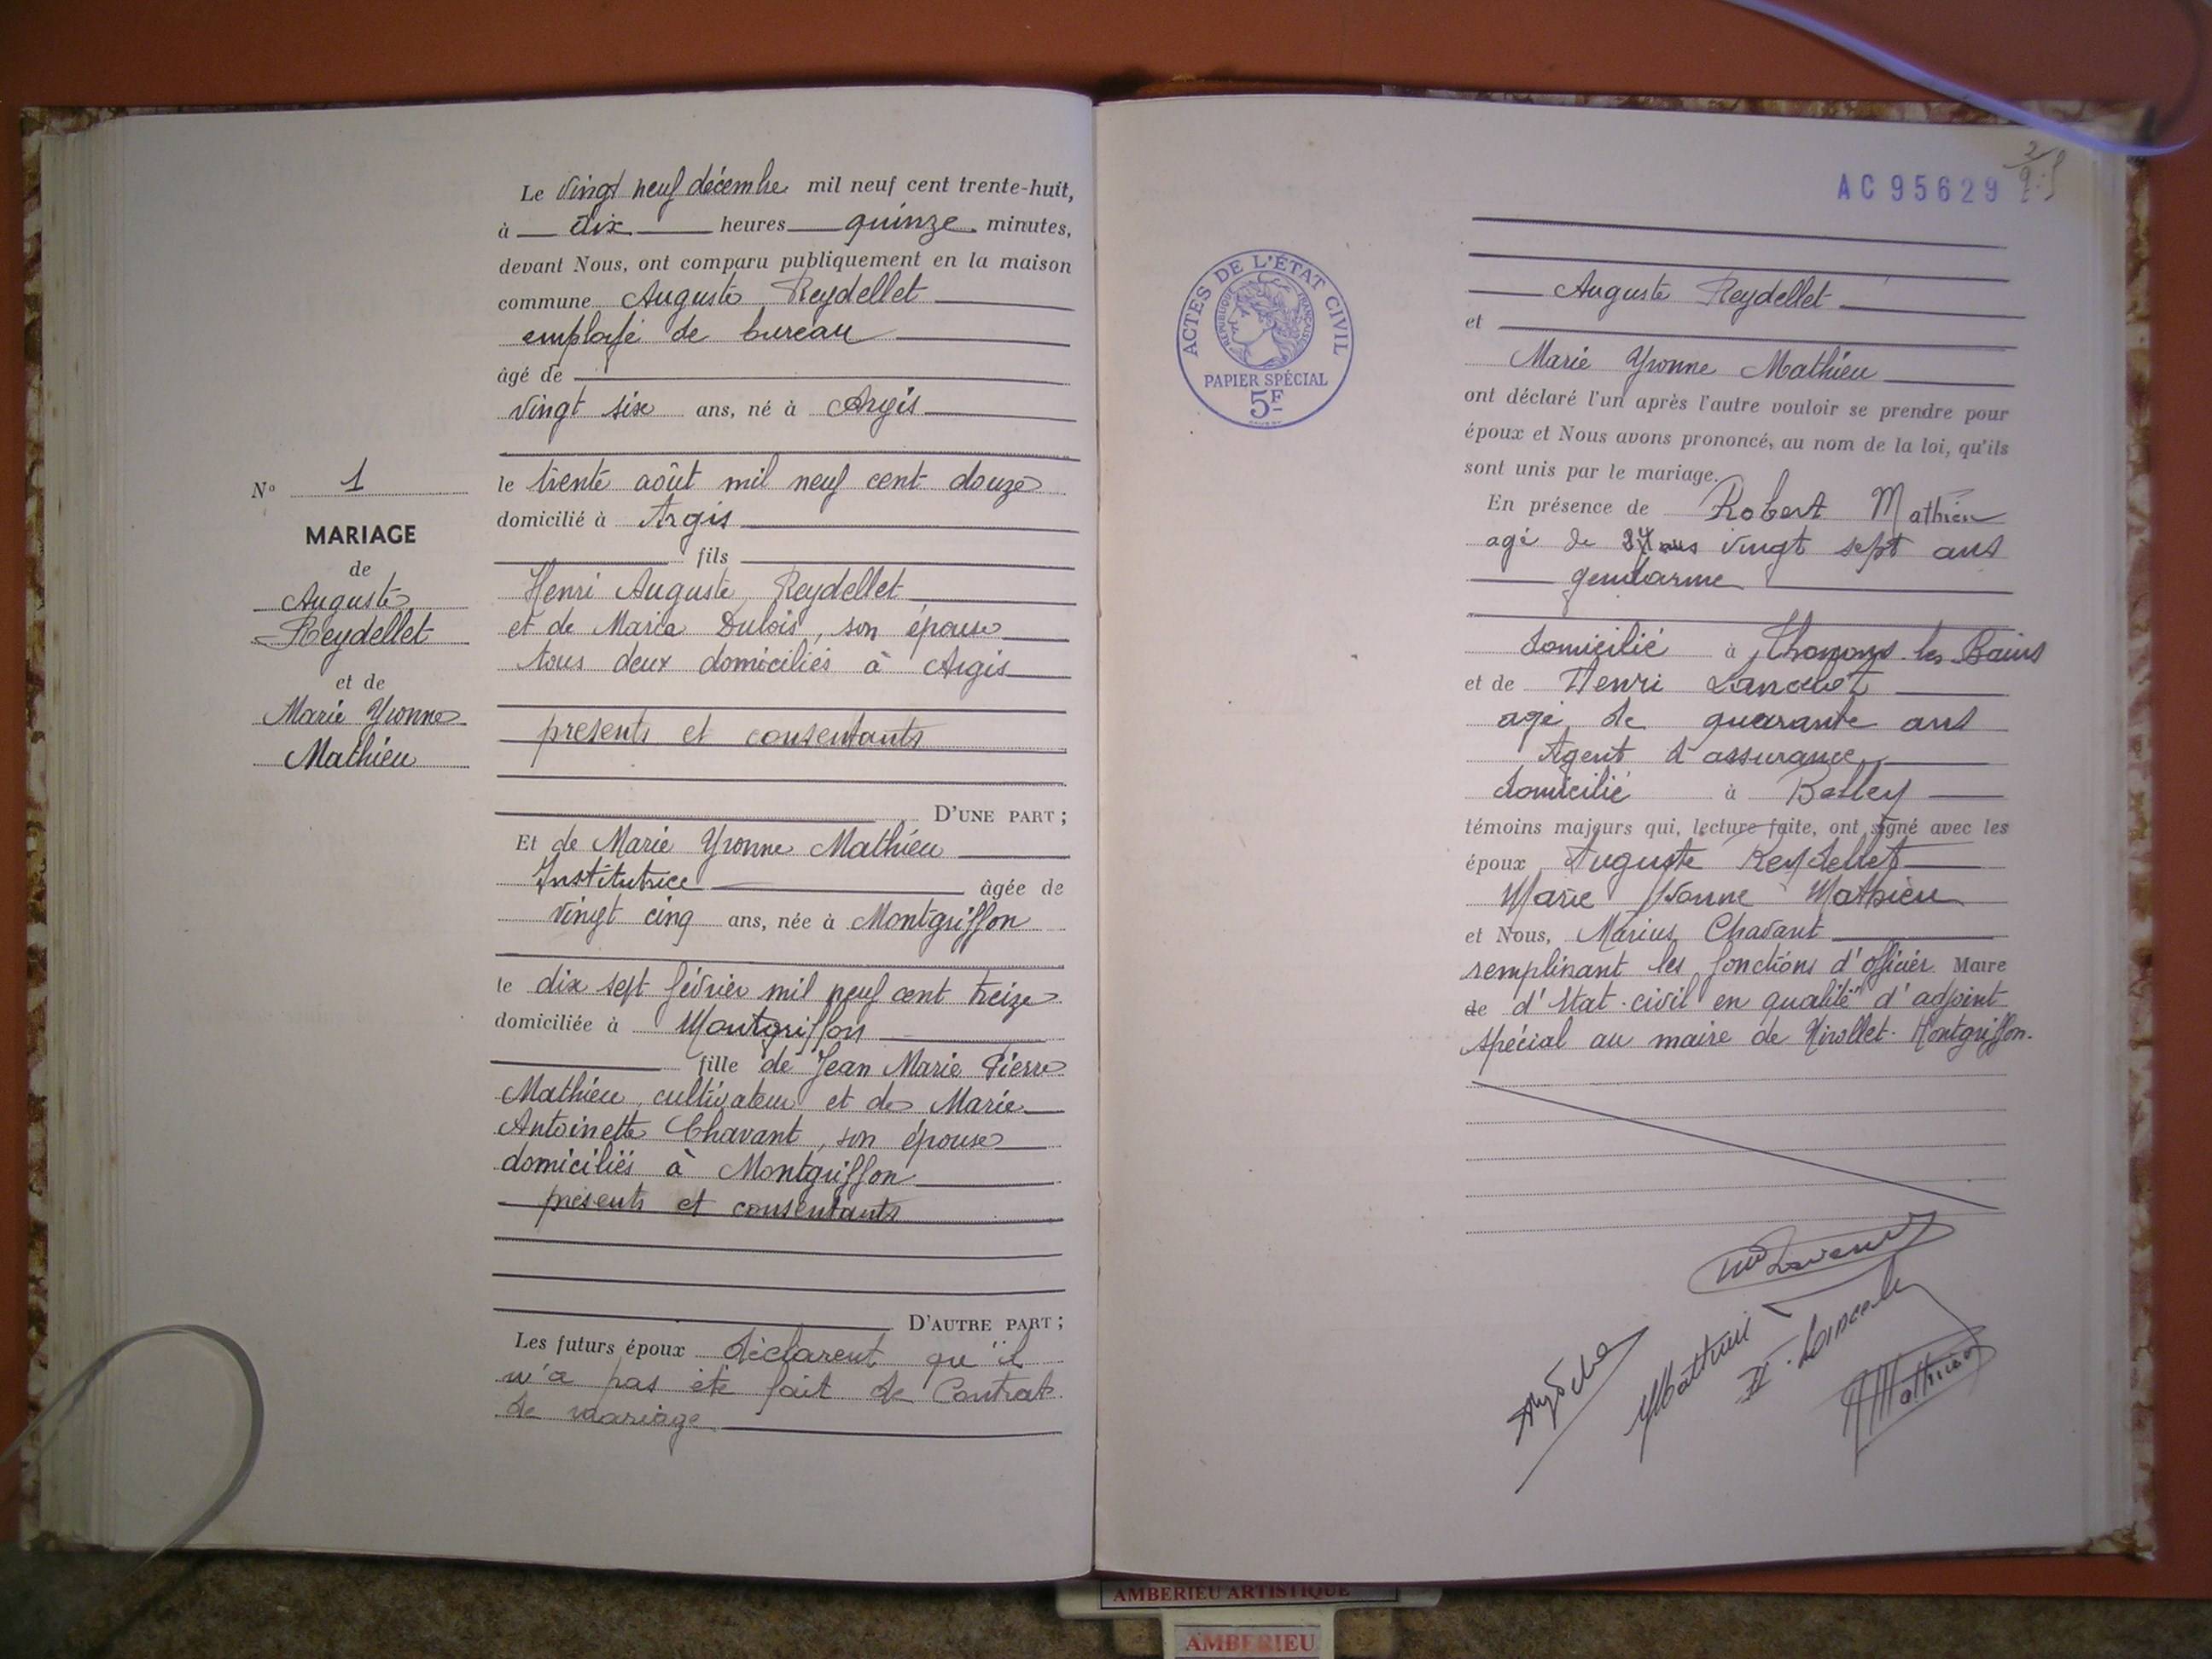 N° 1
MARIAGE
de
Auguste
Reydellet
et de
Marie Yvonne
Mathieu
Le vingt neuf décembre mil neuf cent trente-huit,
à dix heures quinze minutes,
devant Nous, ont comparu publiquement en la maison
commune Auguste Reydellet
employé de bureau
âgé de
vingt six ans, né à Argis
le trente août mil neuf cent douze
domicilié à Argis
fils
Henri Auguste Reydellet
et de Maria Dubois, son épouse
tous deux domiciliés à Argis
présents et consentants
D'UNE PART;
Et de Marie Yvonne Mathieu
Institutrice âgée de
vingt cinq ans, née à Montgriffon
le dix sept février mil neuf cent treize
domiciliée à Montgriffon
fille de Jean Marie Pierre
Mathieu, cultivateur et de Marie
Antoinette Chavant, son épouse
domiciliés à Montgriffon
présents et consentants
D'AUTRE PART;
Les futurs époux déclarent qu'il
n'a pas été fait de Contrat
de mariage
AC95629
ACTES DE L'ÉTAT CIVIL
RÉPUBLIQUE FRANÇAISE
PAPIER SPÉCIAL
5F
Auguste Reydellet
et
Marie Yvonne Mathieu
ont déclaré l'un après l'autre vouloir se prendre pour
époux et Nous avons prononcé, au nom de la loi, qu'ils
sont unis par le mariage.
En présence de Robert Mathieu
agé de vingt sept ans
gendarme
domicilié à Thonons les Bains
et de Henri Lancelot
agé de quarante ans
Agent d'assurance
domicilié à Belley
témoins majeurs qui, lecture faite, ont signé avec les
époux Auguste Reydellet
Marie Yvonne Mathieu
et Nous, Marius Chavant
remplissant les fonctions d'officier Maire
de d'état-civil en qualité d'adjoint
spécial au maire de Nivollet-Montgriffon.
YMathieu
H. Lancelo
Mathieu
AMBERIEU ARTISTIQUE
AMBERIEU